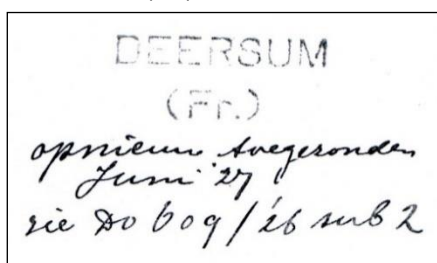 DEERSUM
(Fr.)
opnieuw toegezonden
Juni '27
zie Do 609/'26 sub 2